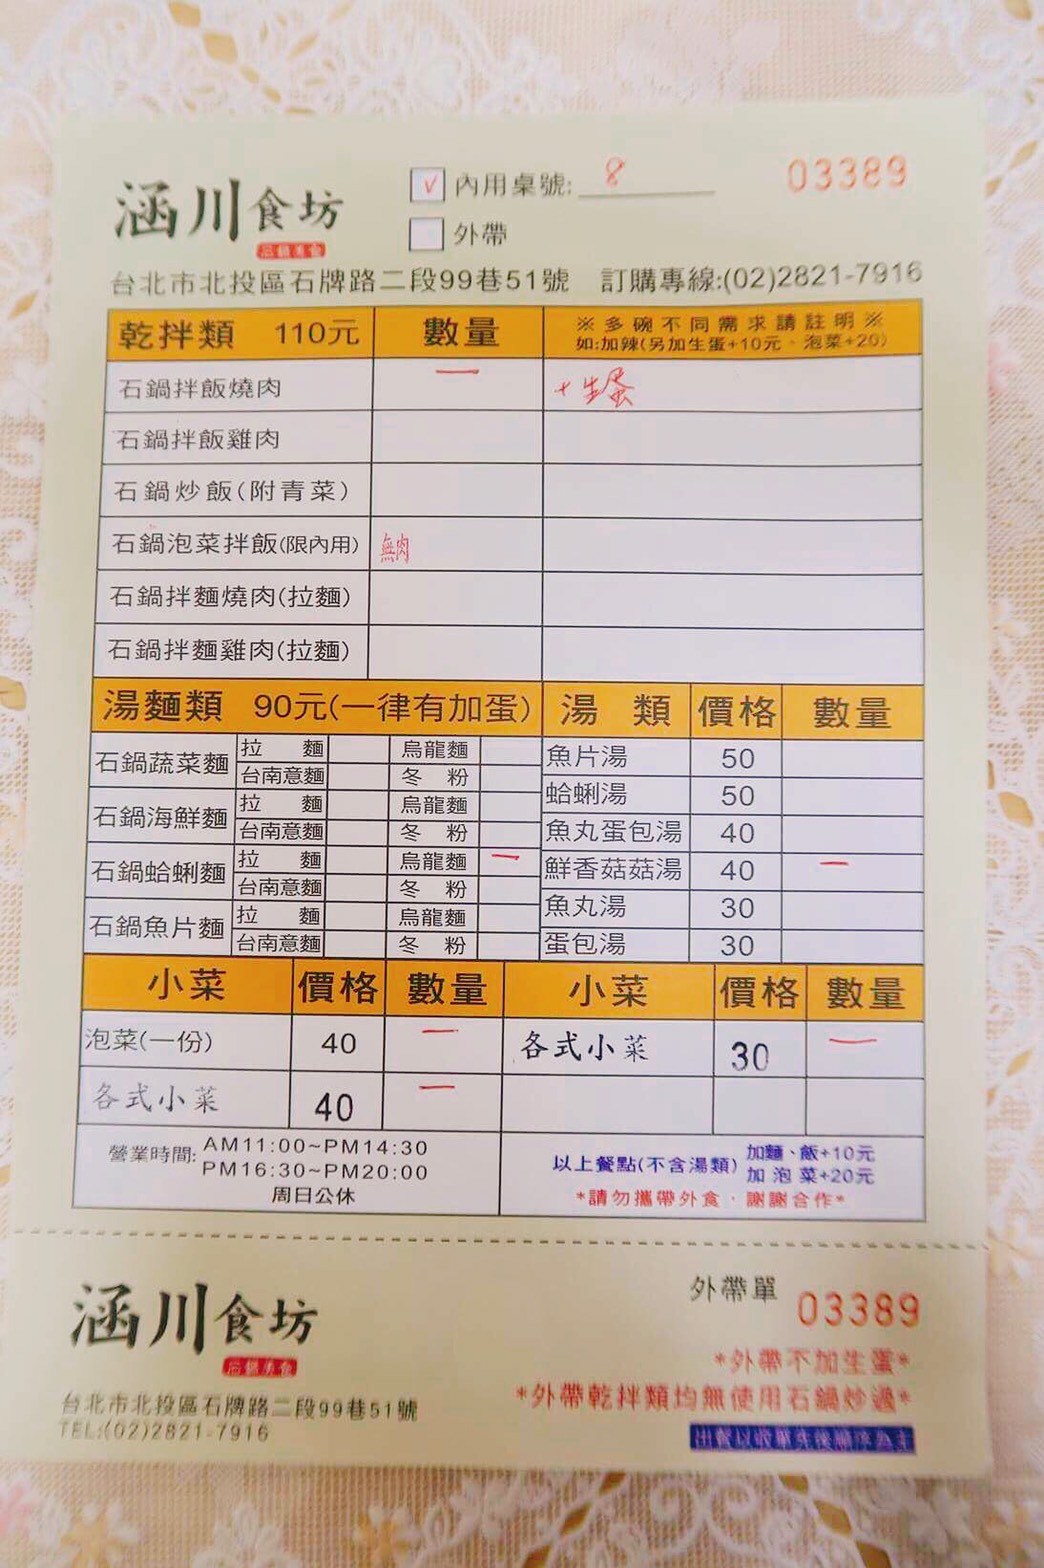 涵川食坊
✓ 內用桌號: 8
03389
外帶
台北市北投區石牌路二段99巷51號 訂購專線:(02)2821-7916
乾拌類 110元 數量 ※多碗不同需求請註明※
如:加辣(另加生蛋+10元、泡菜+20)
石鍋拌飯燒肉 一 +生蛋
石鍋拌飯雞肉
石鍋炒飯(附青菜)
石鍋泡菜拌飯(限內用) 無肉
石鍋拌麵燒肉(拉麵)
石鍋拌麵雞肉(拉麵)
湯麵類 90元(一律有加蛋) 湯類 價格 數量
石鍋蔬菜麵 拉麵 烏龍麵 魚片湯 50
台南意麵 冬粉 蛤蜊湯 50
石鍋海鮮麵 拉麵 烏龍麵
台南意麵 冬粉 魚丸蛋包湯 40
石鍋蛤蜊麵 拉麵 烏龍麵 一 鮮香菇菇湯 40 一
台南意麵 冬粉
石鍋魚片麵 拉麵 烏龍麵 魚丸湯 30
台南意麵 冬粉 蛋包湯 30
小菜 價格 數量 小菜 價格 數量
泡菜(一份) 40 一 各式小菜 30 一
各式小菜 40 一
營業時間: AM11:00~PM14:30
PM16:30~PM20:00
周日公休
以上餐點(不含湯類) 加麵、飯+10元
加泡菜+20元
*請勿攜帶外食,謝謝合作*
涵川食坊
外帶單 03389
*外帶不加生蛋*
*外帶乾拌類均無使用石鍋炒過*
台北市北投區石牌路二段99巷51號
TEL:(02)2821-7916
出餐以收單先後順序為主